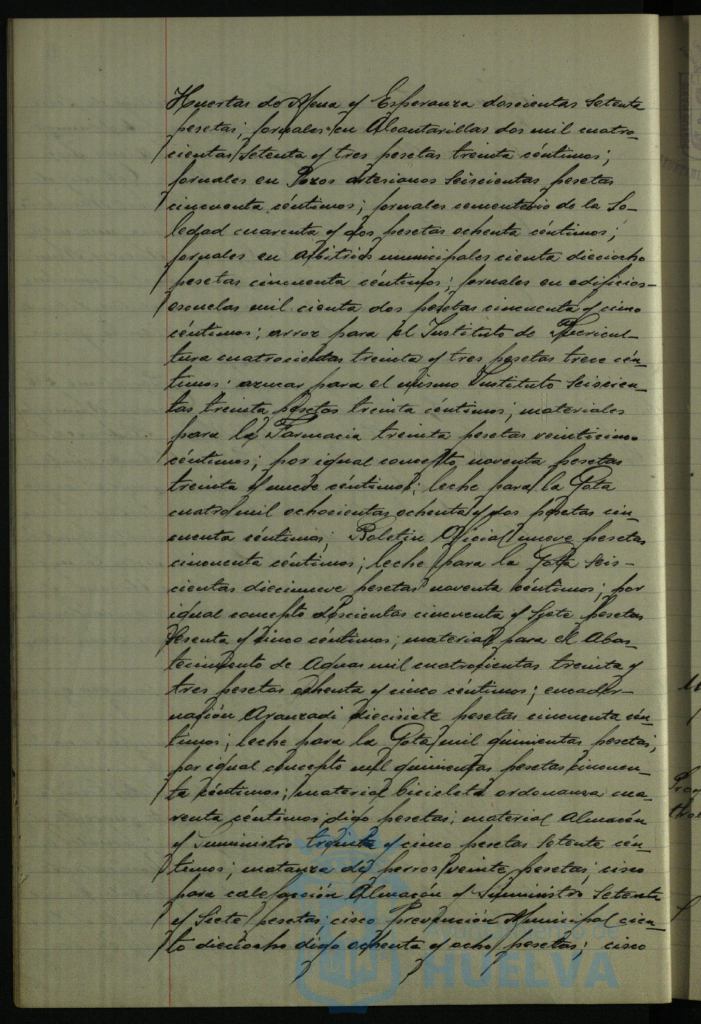 Huertas de Mena y Esperanza doscientas setenta
pesetas; jornales en Alcantarillas dos mil cuatro-
cientas setenta y tres pesetas treinta céntimos;
jornales en Pozos artesianos seiscientas pesetas
cincuenta céntimos; jornales cementerio de la So-
ledad cuarenta y dos pesetas ochenta céntimos;
jornales en arbitrios municipales ciento dieciocho
pesetas cincuenta céntimos; jornales en edificios-
escuelas mil ciento dos pesetas cincuenta y cinco
céntimos; arroz para el Instituto de Puericul-
tura cuatrocientas treinta y tres pesetas trece cén-
timos; azucar para el mismo Instituto seiscien-
tas treinta pesetas treinta céntimos; materiales
para la Farmacia treinta pesetas veinticinco
céntimos; por igual concepto noventa pesetas
treinta y nueve céntimos; leche para la Gota
cuatro mil ochocientas ochenta y dos pesetas cin-
cuenta céntimos; Boletin Oficial nueve pesetas
cincuenta céntimos; leche para la Gota seis-
cientas diecinueve pesetas noventa céntimos; por
igual concepto doscientas cincuenta y siete pesetas
sesenta y cinco céntimos; material para el Abas-
tecimiento de Aguas mil cuatrocientas treinta y
tres pesetas ochenta y cinco céntimos; encader-
nación Aranzadi diecisiete pesetas cincuenta cén-
timos; leche para la Gota mil quinientas pesetas;
por igual concepto mil quinientas pesetas cincuen-
ta céntimos; material bicicleta ordenanza cua-
renta céntimos digo pesetas; material Almacén
y Suministro treinta y cinco pesetas setenta cén-
timos; matanza de perros veinte pesetas; cisco
para calefacción Almacén y Suministro setenta
y siete pesetas; cisco Prevención Municipal cien-
to dieciocho digo ochenta y ocho pesetas; cisco
HUELVA